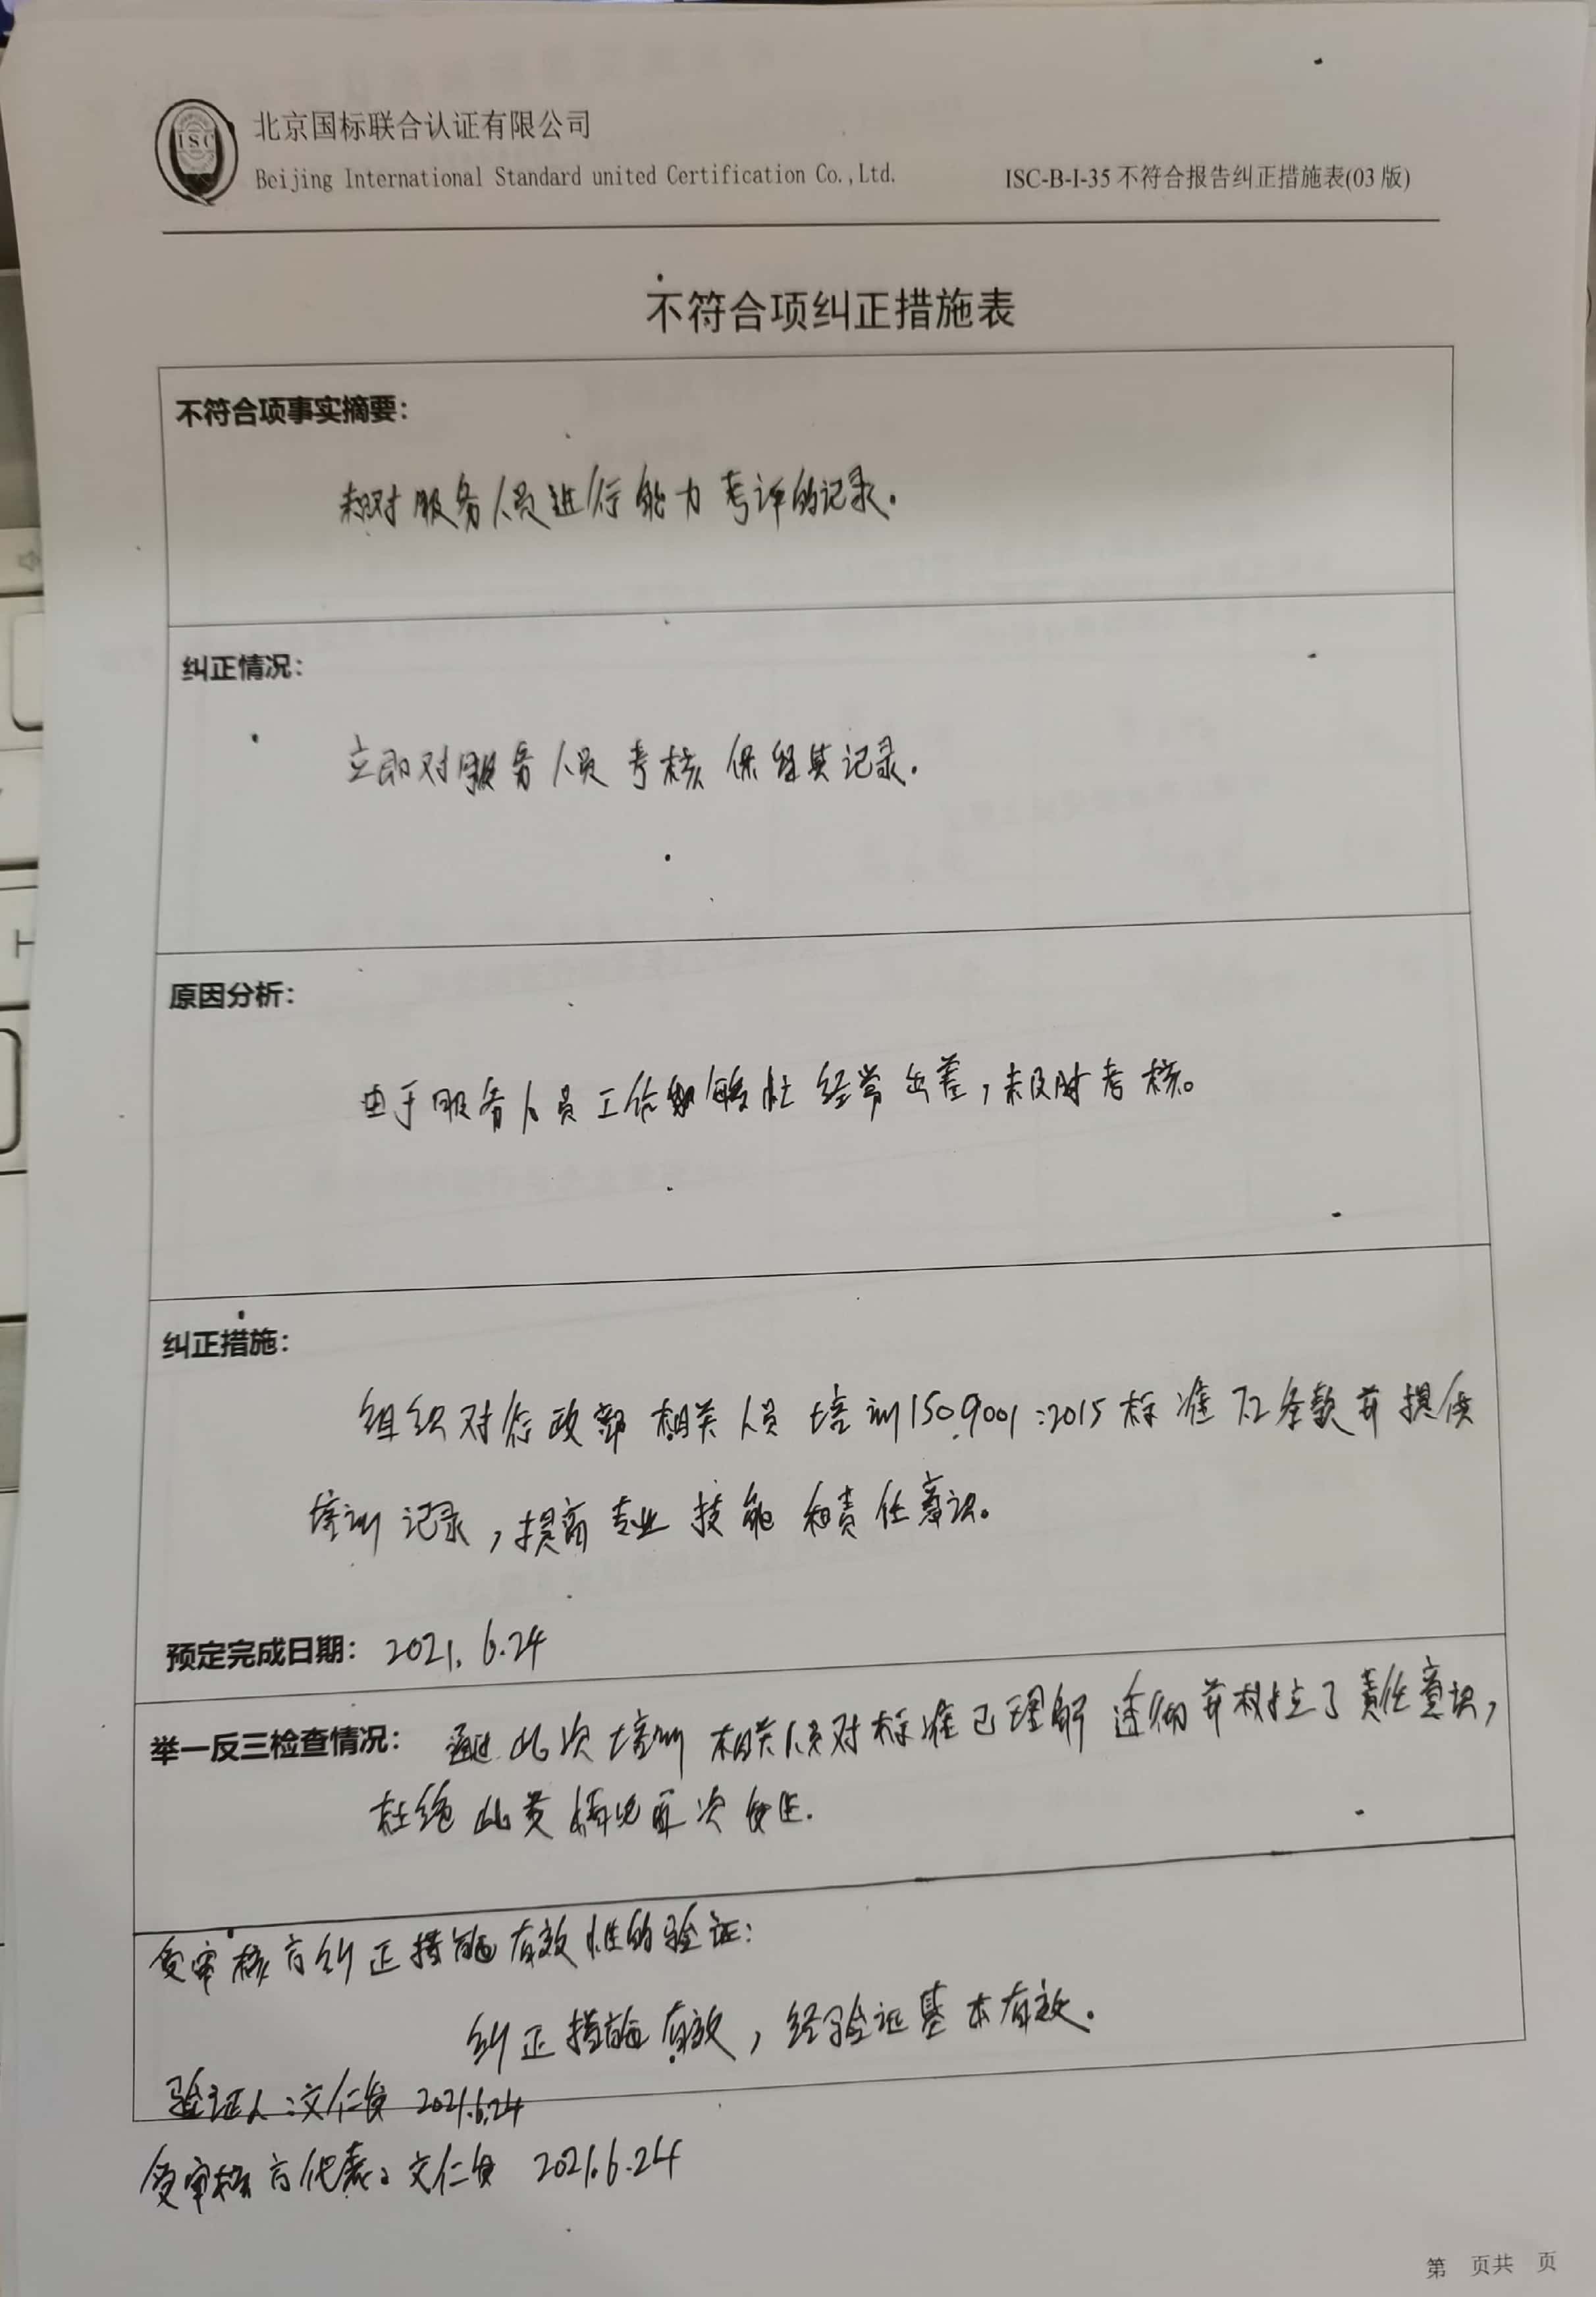 ISC
北京国标联合认证有限公司
Beijing International Standard united Certification Co.,Ltd.
ISC-B-I-35 不符合报告纠正措施表(03 版)
不符合项纠正措施表
不符合项事实摘要：
对服务人员进行能力考评的记录.
纠正情况：
立即对服务人员考核 保留其记录.
原因分析：
由于服务人员工作 忙 经常出差,未及时考核。
纠正措施：
组织对行政部相关人员培训ISO9001:2015标准7.2条款并提供
培训记录,提高专业技能和责任意识。
预定完成日期：2021.6.24
举一反三检查情况： 通过此次培训相关人员对标准已理解透彻并树立了责任意识,
杜绝此类情况再次发生.
受审核方纠正措施有效性的验证:
纠正措施有效,经验证基本有效.
验证人:文仁 2021.6.24
受审核方代表:文仁 2021.6.24
第 页共 页